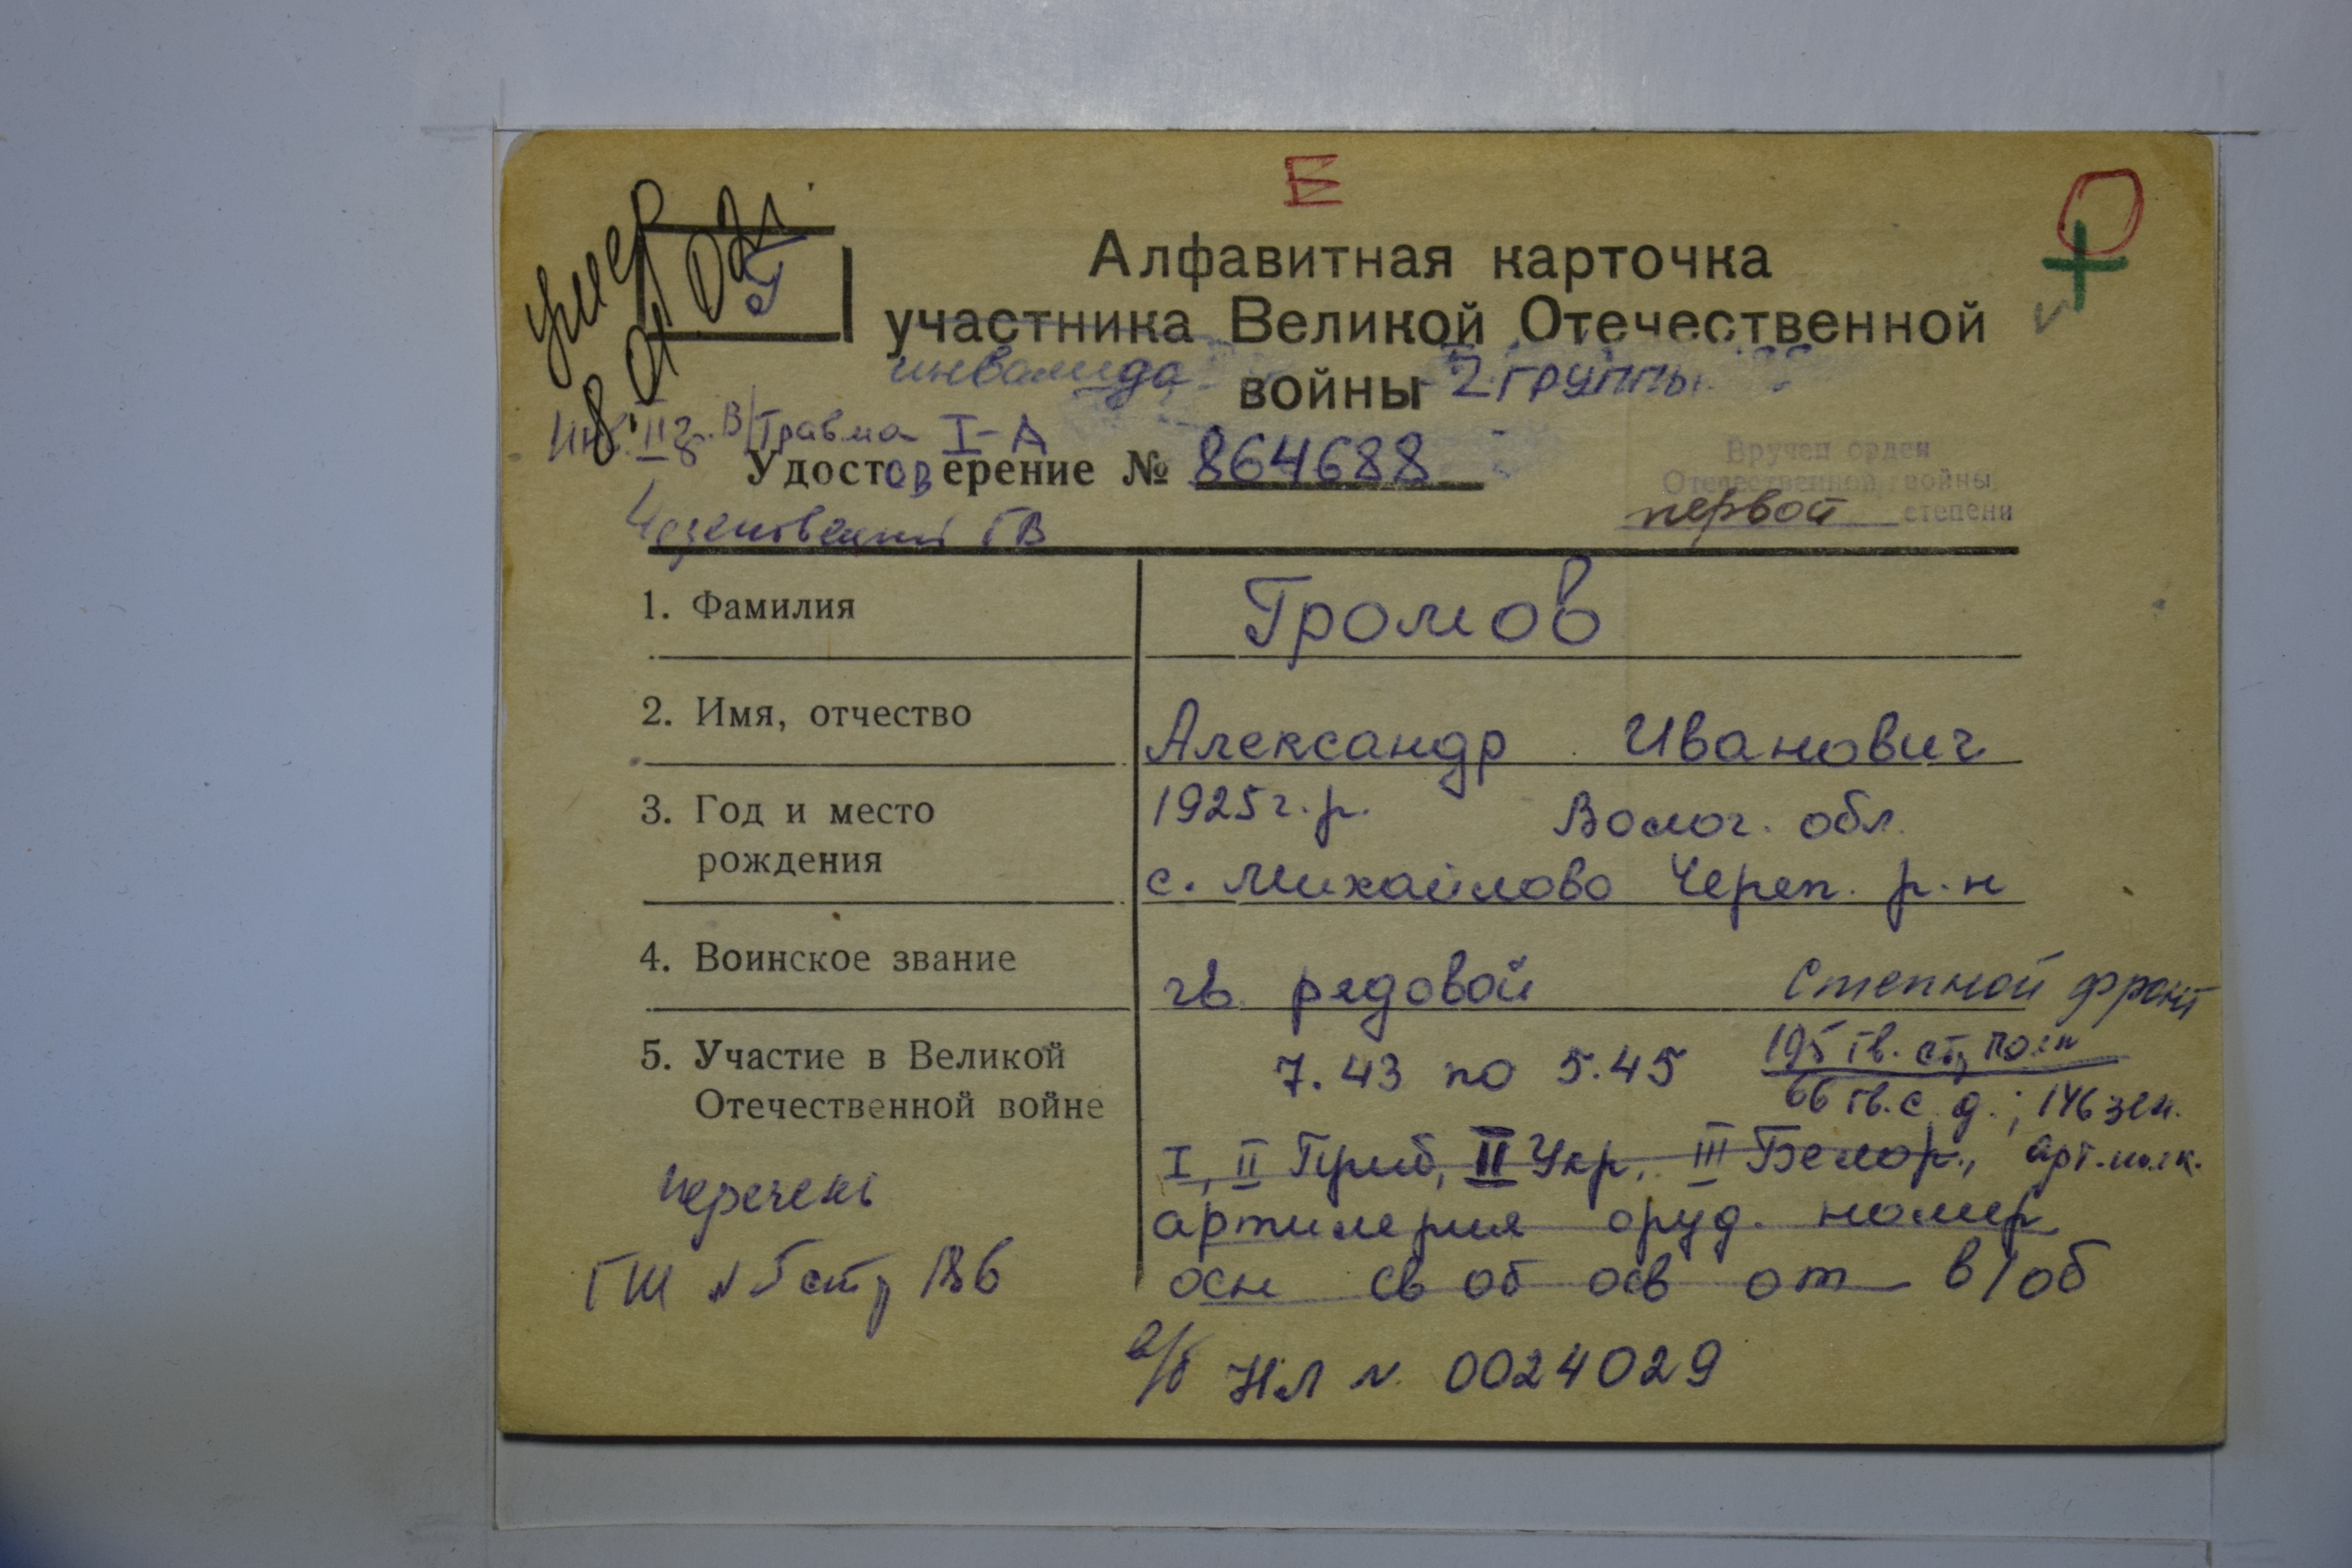 Е
умер
8 01 02г
Г
Алфавитная карточка
участника Великой Отечественной
инвалида войны 2 группы
Инв. II г. В/Травма I-А
Удостоверение № 8648688
Вручен орден
Отечественной войны
первой степени
ГВ
1. Фамилия Громов
2. Имя, отчество Александр Иванович
3. Год и место рождения 1925 г.р. Волог. обл.
с. Михайлово Череп. р-н
4. Воинское звание гв. рядовой
Степной фронт
5. Участие в Великой Отечественной войне 7.43 по 5.45
195 гв. стр полк
66 гв. с. д.; 146 зен.
арт. полк.
I, II Приб, II Укр, III Белор.,
артилерия оруд. номер
осн св об осв от в/об
перечень
ГШ № 5 стр 186
в/б НЛ № 0024029